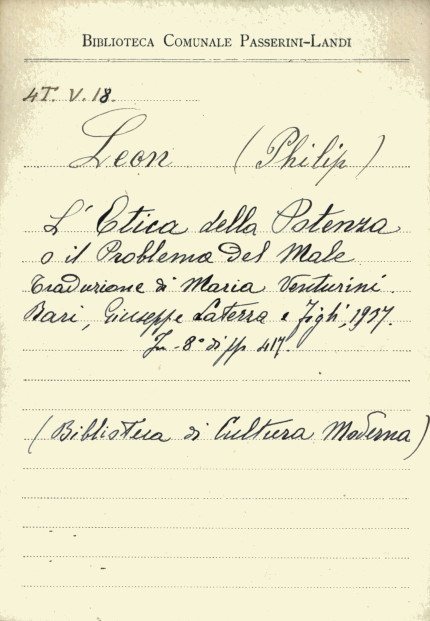 BIBLIOTECA COMUNALE PASSERINI-LANDI
4T. V. 18.
Leon (Philip)
L'Etica della Potenza
o il Problema del Male
Traduzione di Maria Venturini.
Bari, Giuseppe Laterza e Figli, 1937.
In-8° di pp 417.
(Biblioteca di Cultura Moderna)